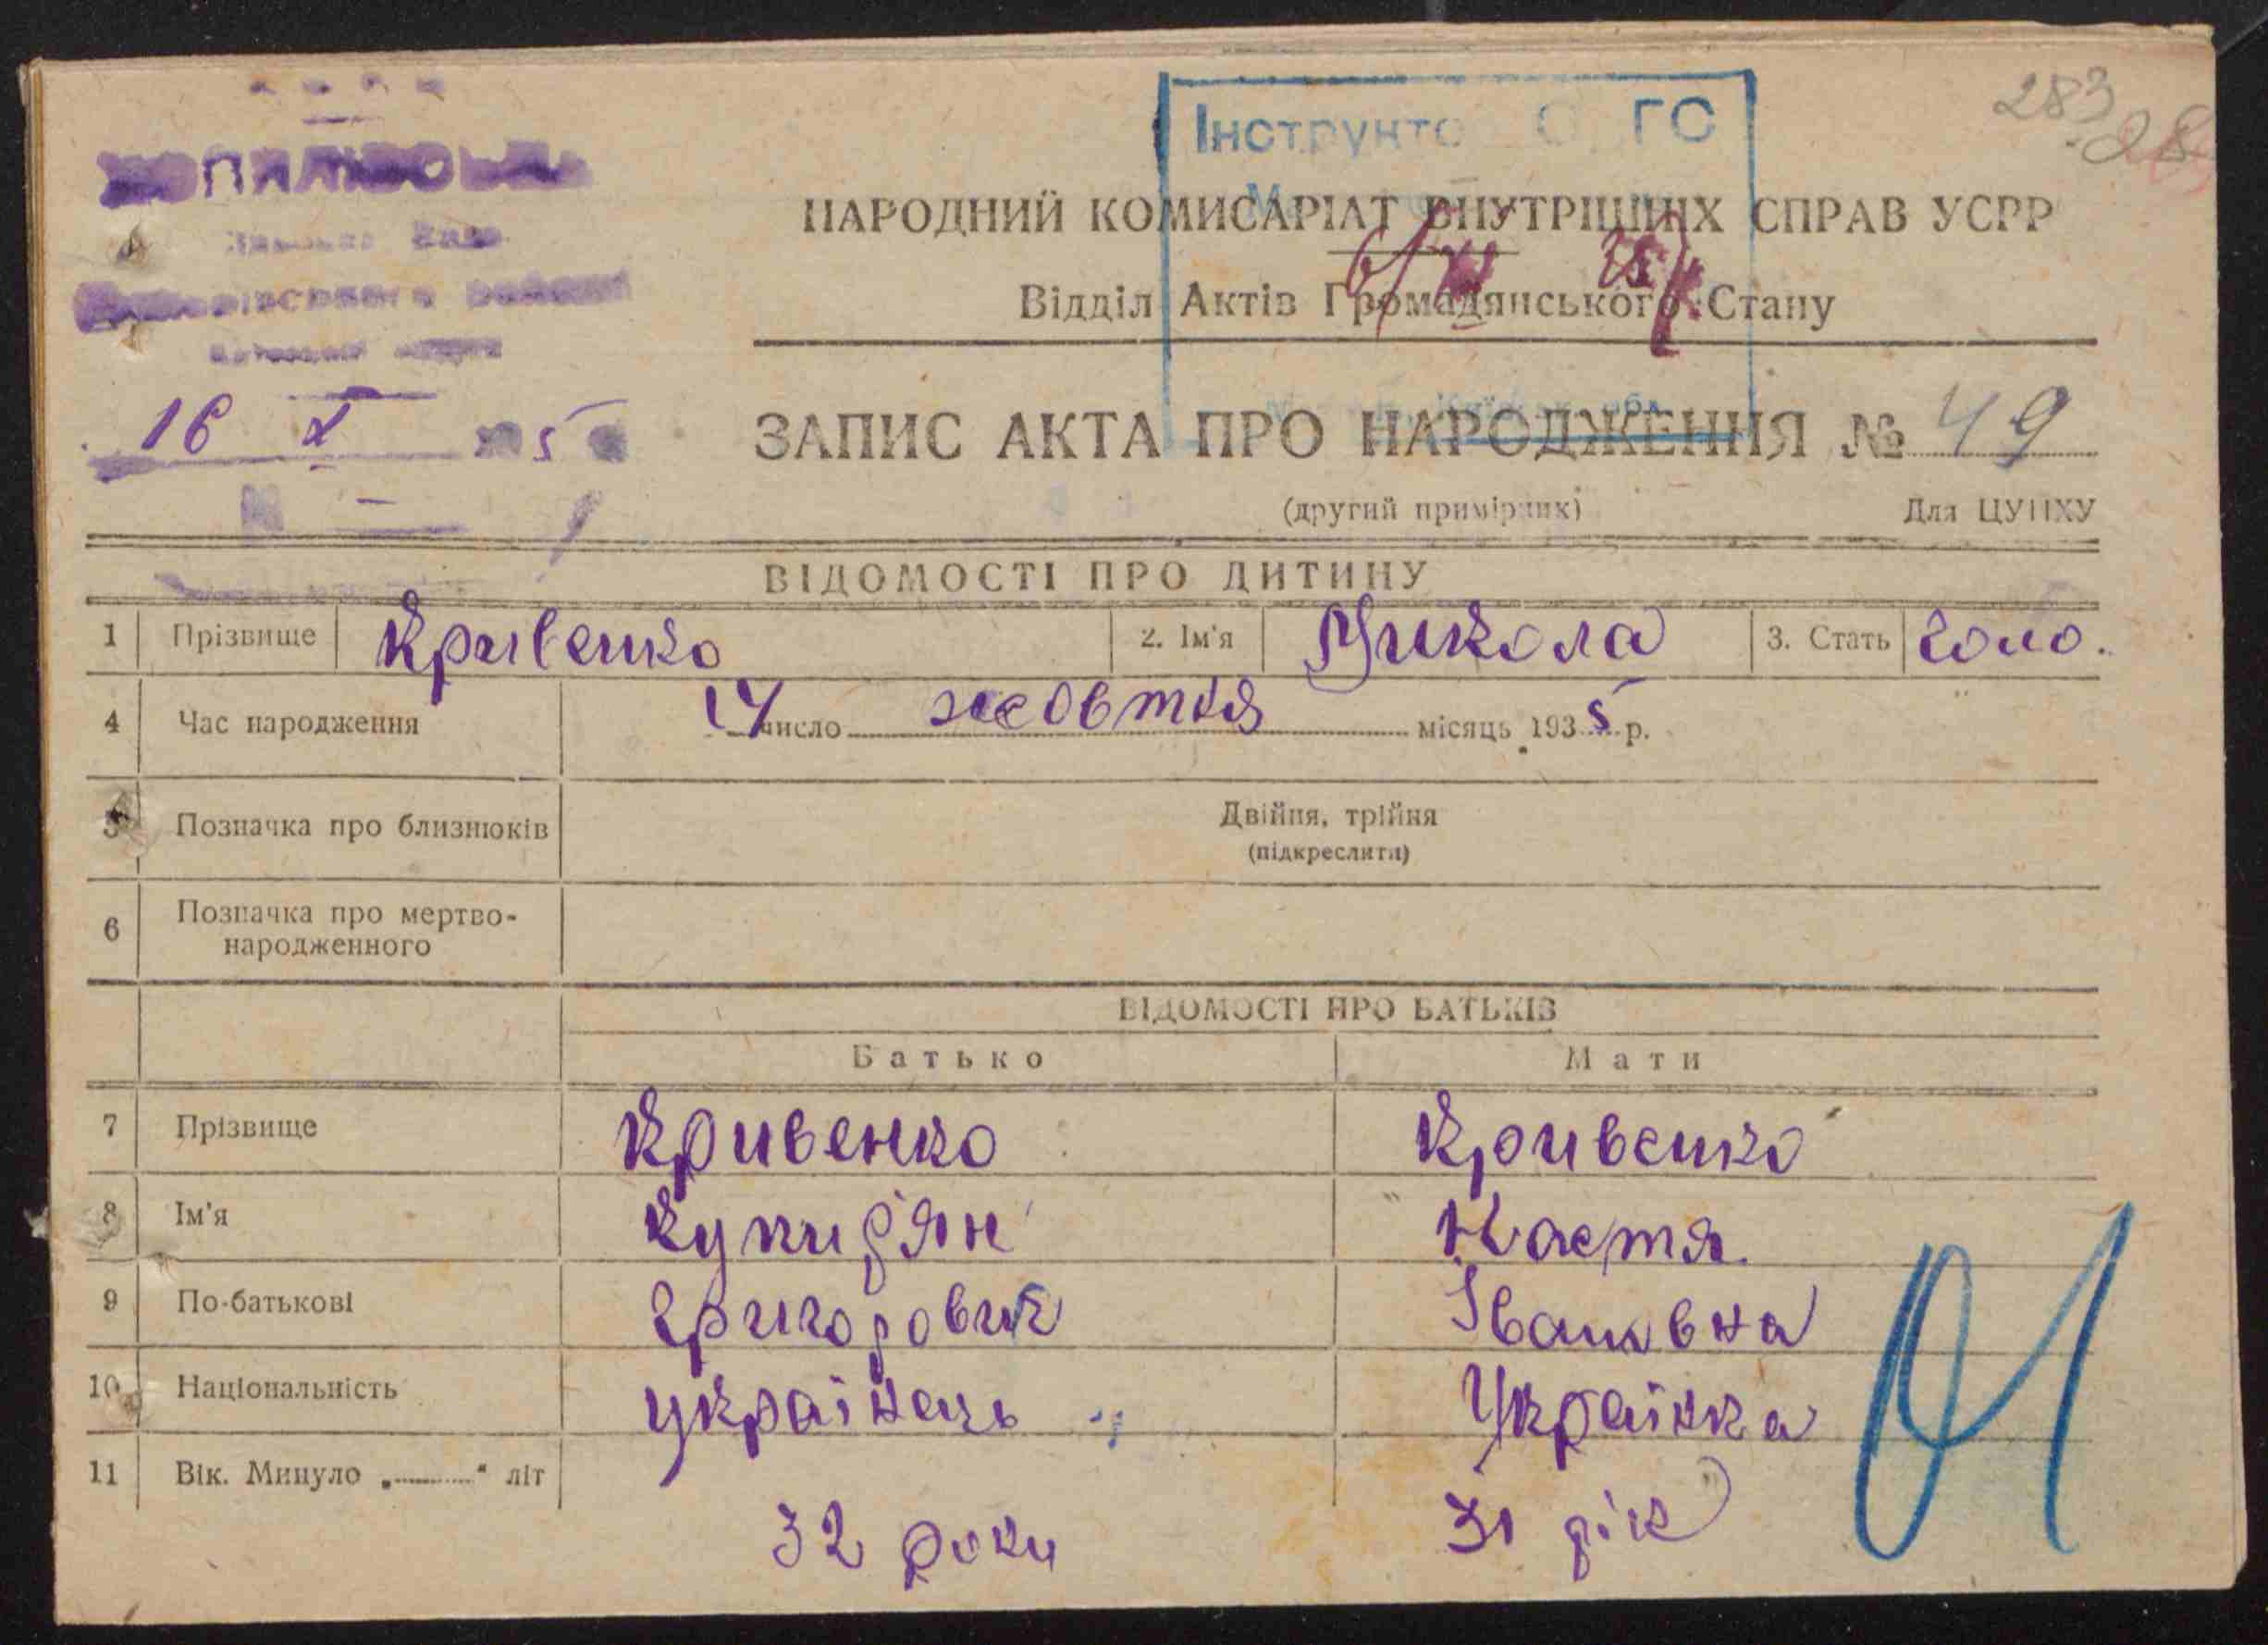 283
Інструкто О ГС
НАРОДНИЙ КОМИСАРІАТ ВНУТРІШНІХ СПРАВ УСРР
Відділ Актів Громадянського Стану
16 X 5
ЗАПИС АКТА ПРО НАРОДЖЕННЯ № 49
(другий примірник) Для ЦУНХУ
ВІДОМОСТІ ПРО ДИТИНУ
1 Прізвище Кривенко 2. Ім'я Микола 3. Стать чоло.
4 Час народження 14 число жовтня місяць 1935 р.
5 Позначка про близнюків Двійня, трійня
(підкреслити)
6 Позначка про мертво-
народженного
ВІДОМОСТІ ПРО БАТЬКІВ
Батько Мати
7 Прізвище Кривенко Кривенко
8 Ім'я Купид'ян Настя
9 По-батькові Григорович Івановна
10 Національність українець Українка
11 Вік. Минуло „ “ літ
32 роки 31 рік